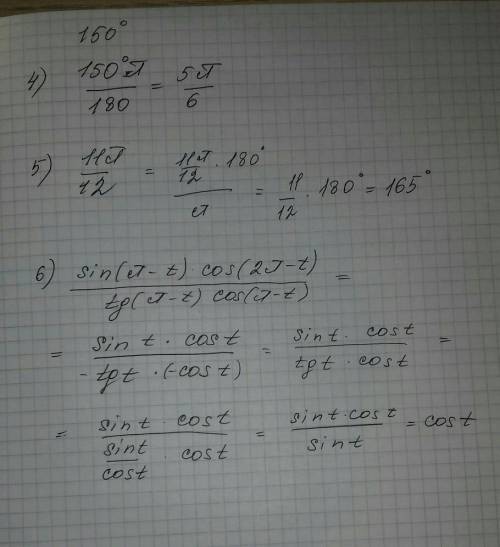 150°
4) 150°π/180 = 5π/6
5) 11π/12 = (11π/12 · 180°)/π = 11/12 · 180° = 165°
6) sin(π-t) · cos(2π-t) / tg(π-t) cos(π-t) =
= sin t · cos t / -tg t · (-cos t) = sin t · cos t / tg t · cos t =
= sin t · cos t / (sin t/cos t) · cos t = sin t · cos t / sin t = cos t